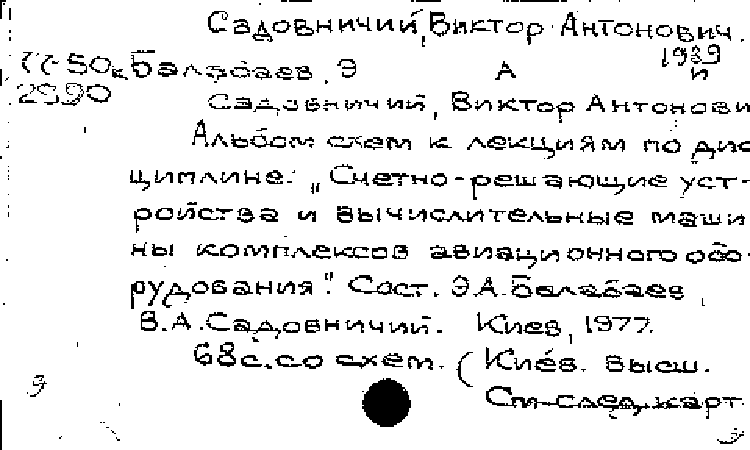 Садовничий, Виктор Антонович.
1939
77-50 к Балабаев, Э А и
2990
Садовничий, Виктор Антонови
Альбом схем к лекциям по дис
циплине: „Счетно-решающие уст-
ройства и вычислительные маши
ны комплексов авиационного обо-
рудования". Сост. Э.А. Балабаев,
В.А. Садовничий. Киев, 1977.
68с. со схем. (Киев. высш.
См. след. карт.